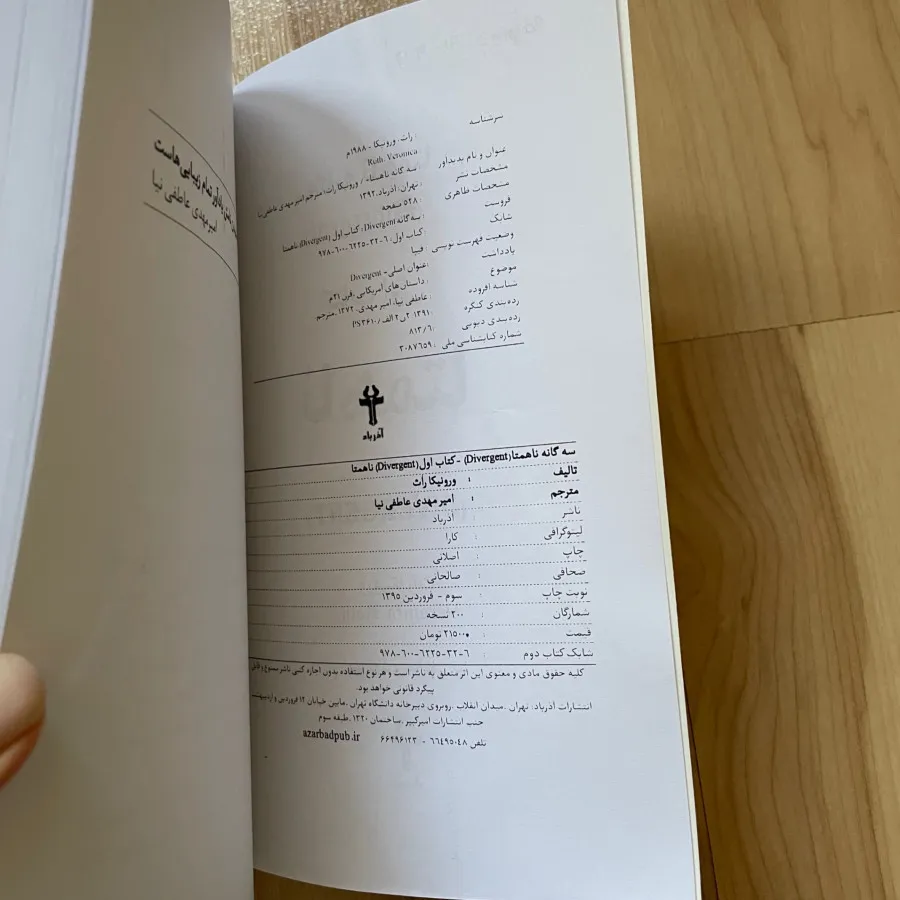 تمام زیبایی هاست
امیرمهدی عاطفی نیا
سرشناسه : راث، ورونیکا - ۱۹۸۸م
Roth, Veronica
عنوان و نام پدیدآور : سه گانه ناهمتا» / ورونیکا راث؛ مترجم امیرمهدی عاطفی نیا
مشخصات نشر : تهران: آذرباد، ۱۳۹۲.
مشخصات ظاهری : ۵۲۸ صفحه
فروست : سه گانه Divergent؛ کتاب اول (Divergent) ناهمتا
شابک : کتاب اول: ۶-۳۲-۶۲۲۵-۶۰۰-۹۷۸
وضعیت فهرست نویسی : فیپا
یادداشت : عنوان اصلی- Divergent
موضوع : داستان های آمریکایی ،قرن ۲۱م
شناسه افزوده : عاطفی نیا، امیرمهدی، ۱۳۷۲ ،مترجم
رده‌بندی کنگره : ۱۳۹۱ ۲ن۲الف/PS۳۶۱۰
رده‌بندی دیویی : ۸۱۳/۶
شماره کتابشناسی ملی : ۳۰۸۷۶۵۹
آذرباد
سه گانه ناهمتا(Divergent) -کتاب اول(Divergent) ناهمتا
تالیف : ورونیکا راث
مترجم : امیرمهدی عاطفی نیا
ناشر : آذرباد
لیتوگرافی : کارا
چاپ : اصلانی
صحافی : صالحانی
نوبت چاپ : سوم - فروردین ۱۳۹۵
شمارگان : ۲۰۰ نسخه
قیمت : ۲۱۵۰۰ تومان
شابک کتاب دوم : ۶-۳۲-۶۲۲۵-۶۰۰-۹۷۸
کلیه حقوق مادی و معنوی این اثر متعلق به ناشر است و هر نوع استفاده بدون اجازه کتبی ناشر ممنوع و قابل
پیگرد قانونی خواهد بود.
انتشارات آذرباد: تهران ،میدان انقلاب ،روبروی دبیرخانه دانشگاه تهران ،مابین خیابان ۱۲ فروردین و اردیبهشت
جنب انتشارات امیرکبیر ،ساختمان ۱۳۲۰ ،طبقه سوم
تلفن ۶۶۴۹۵۰۴۸ - ۶۶۴۹۶۱۲۳ azarbadpub.ir